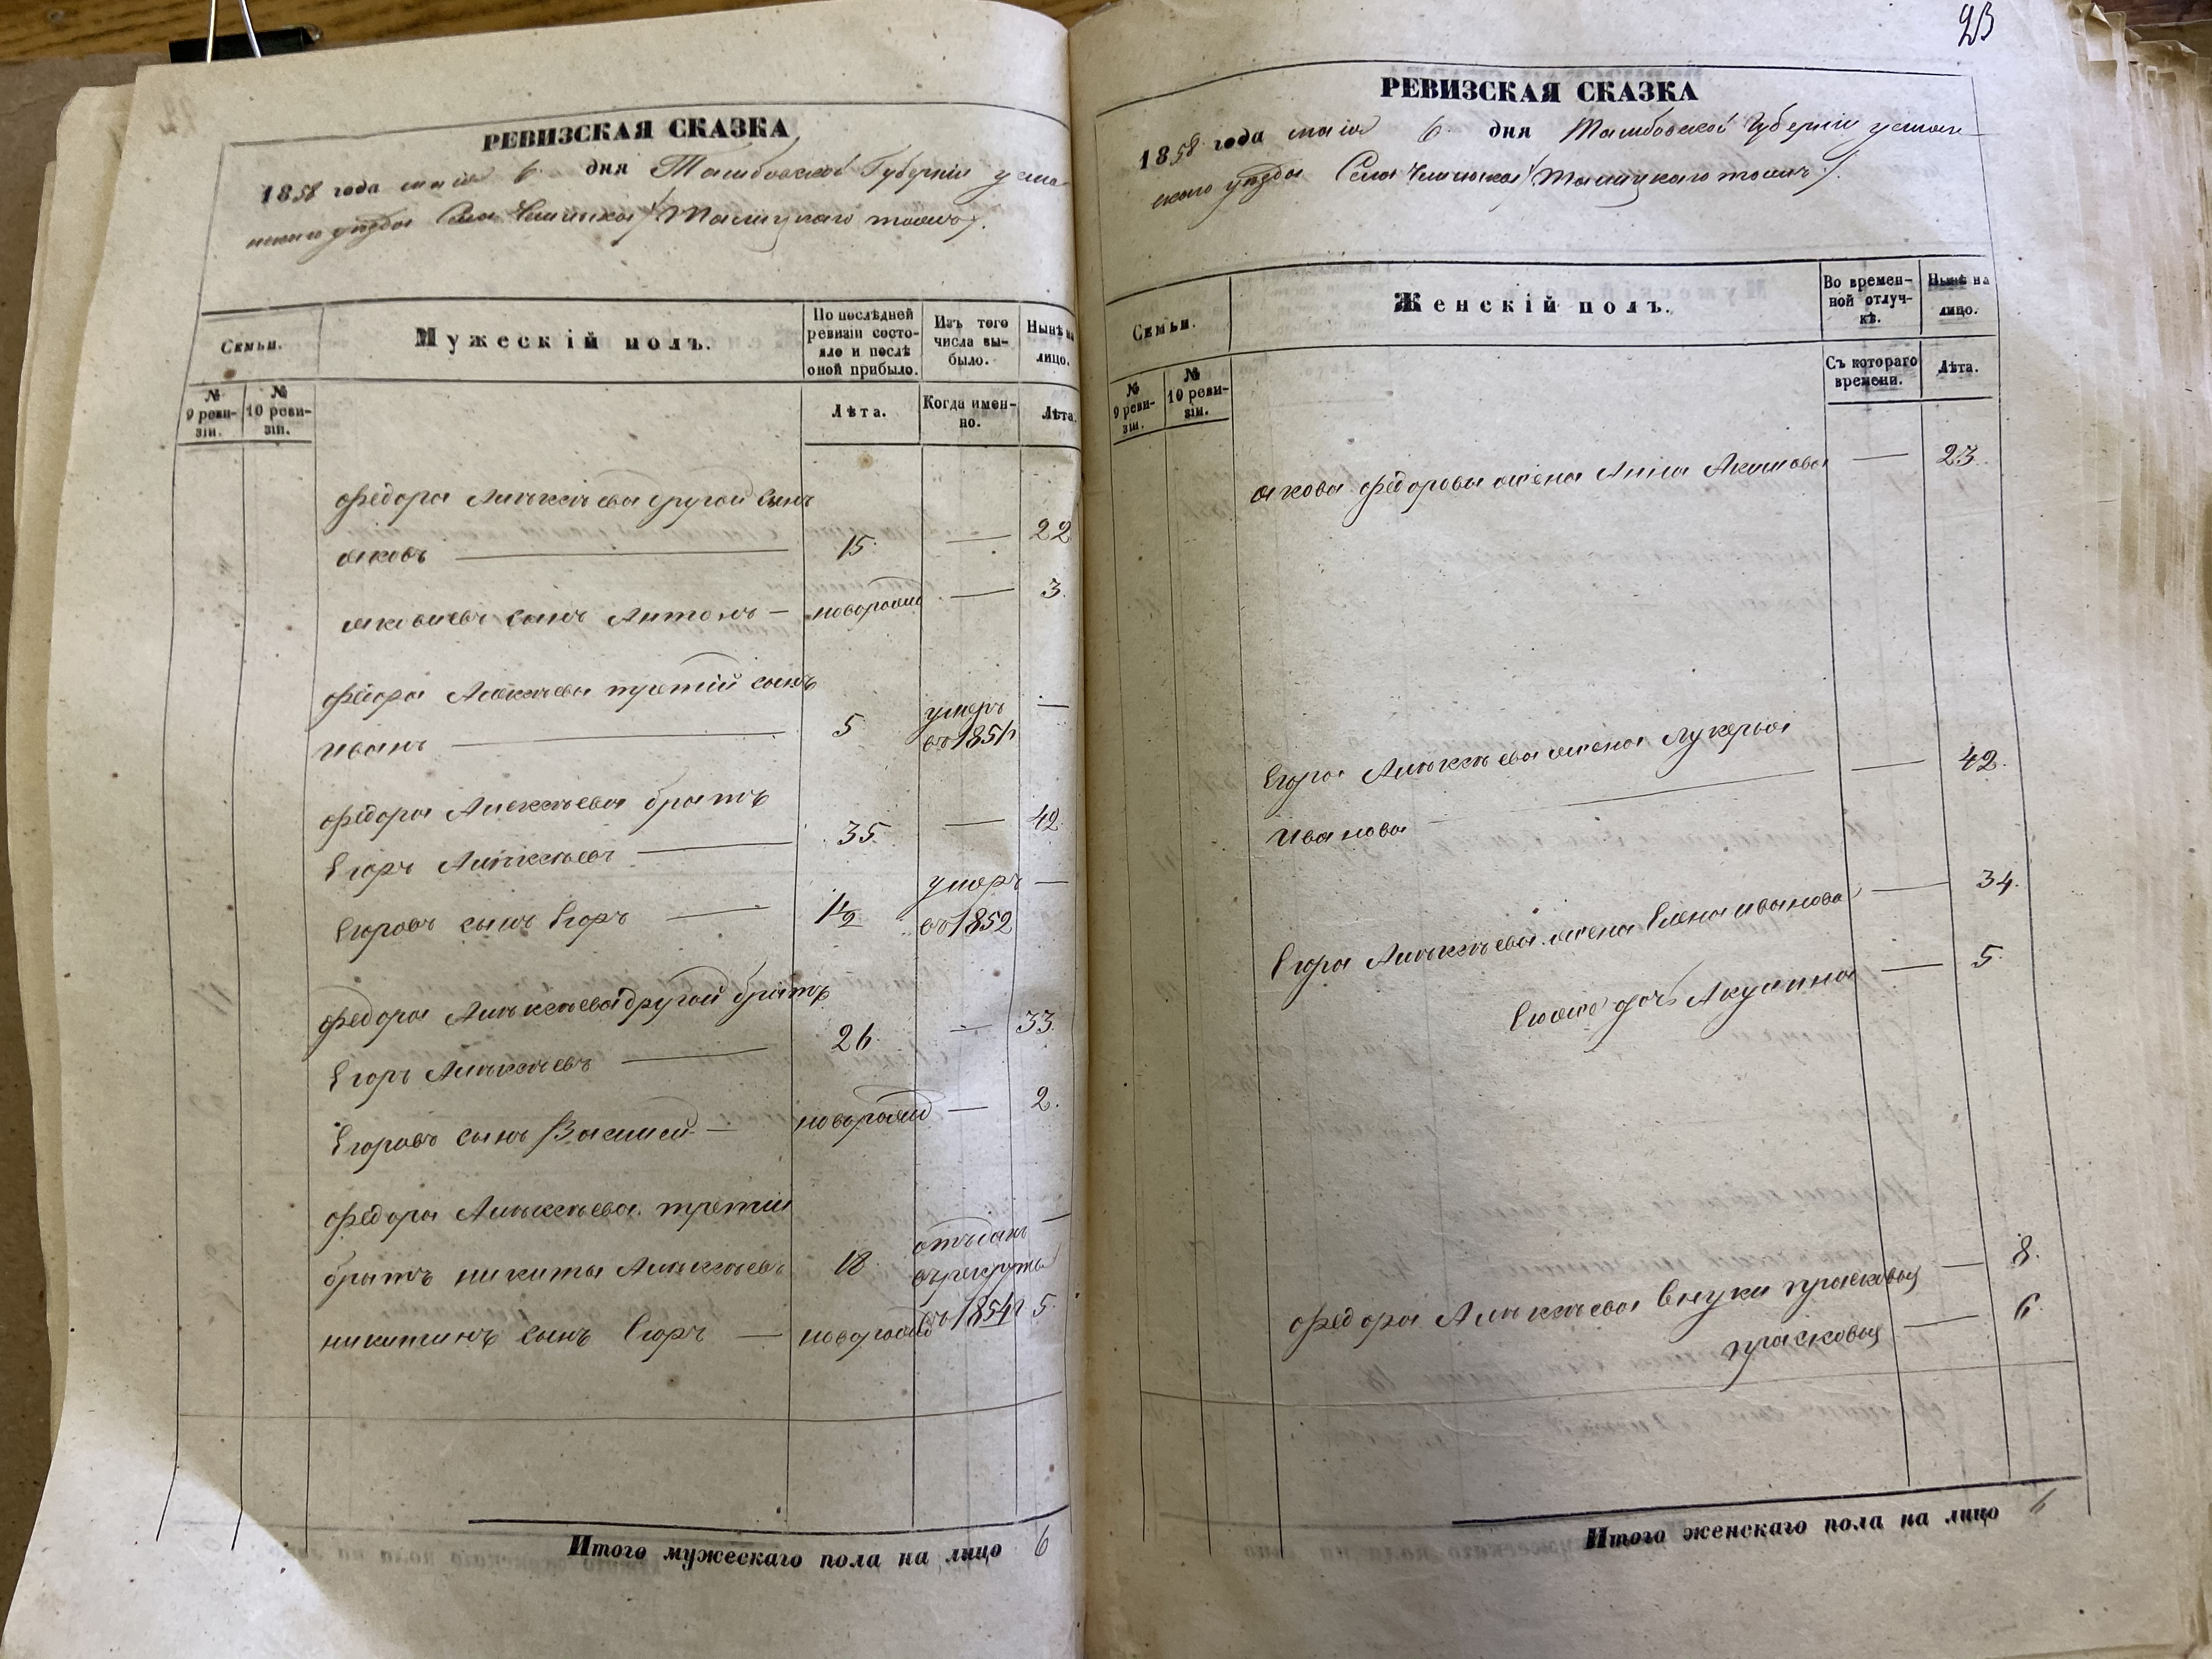 РЕВИЗСКАЯ СКАЗКА
1858 года маія 6 дня Тамбовской Губерніи усма
нскаго уѣзда Села
Семьи.
Мужескій полъ.
По послѣдней ревизіи состояло и послѣ оной прибыло.
Изъ того числа выбыло.
Нынѣ на лицо.
№ 9 ревизіи.
№ 10 ревизіи.
Лѣта.
Когда именно.
Лѣта.
федора Алѣксѣева другой сынъ
яковъ 15 — 22
яковлевъ сынъ Антонъ — новорожд — 3.
федора Алексѣева третій сынъ
иванъ 5 умеръ въ 1851 —
федора Алексѣева братъ
Егоръ Алѣксѣевъ 35 — 42
Егоровъ сынъ Егоръ — 1½ умеръ въ 1852 —
федора Алѣксѣева другой братъ
Егоръ Алѣксѣевъ 26 — 33.
Егоровъ сынъ Василей — новорожд — 2.
федора Алѣксѣева третій
братъ никита Алѣксѣевъ 18 отъданъ въ рекруты въ 1854 —
никитинъ сынъ Егоръ — новорожд 5
Итого мужескаго пола на лицо 6
23
РЕВИЗСКАЯ СКАЗКА
1858 года маія 6 дня Тамбовской Губерніи усман-
скаго уѣзда Села
Семьи.
Женскій полъ.
Во временной отлучкѣ.
Нынѣ на лицо.
№ 9 ревизіи.
№ 10 ревизіи.
Съ котораго времени.
Лѣта.
якова федорова жена Анна Акимова — 23.
Егора Алѣксѣева жена лукерья
иванова — 42.
Егора Алѣксѣева жена Елена иванова — 34.
Егоже дочь Акулина — 5.
федора Алѣксѣева внуки прасковья — 8.
прасковья — 6
Итого женскаго пола на лицо 6